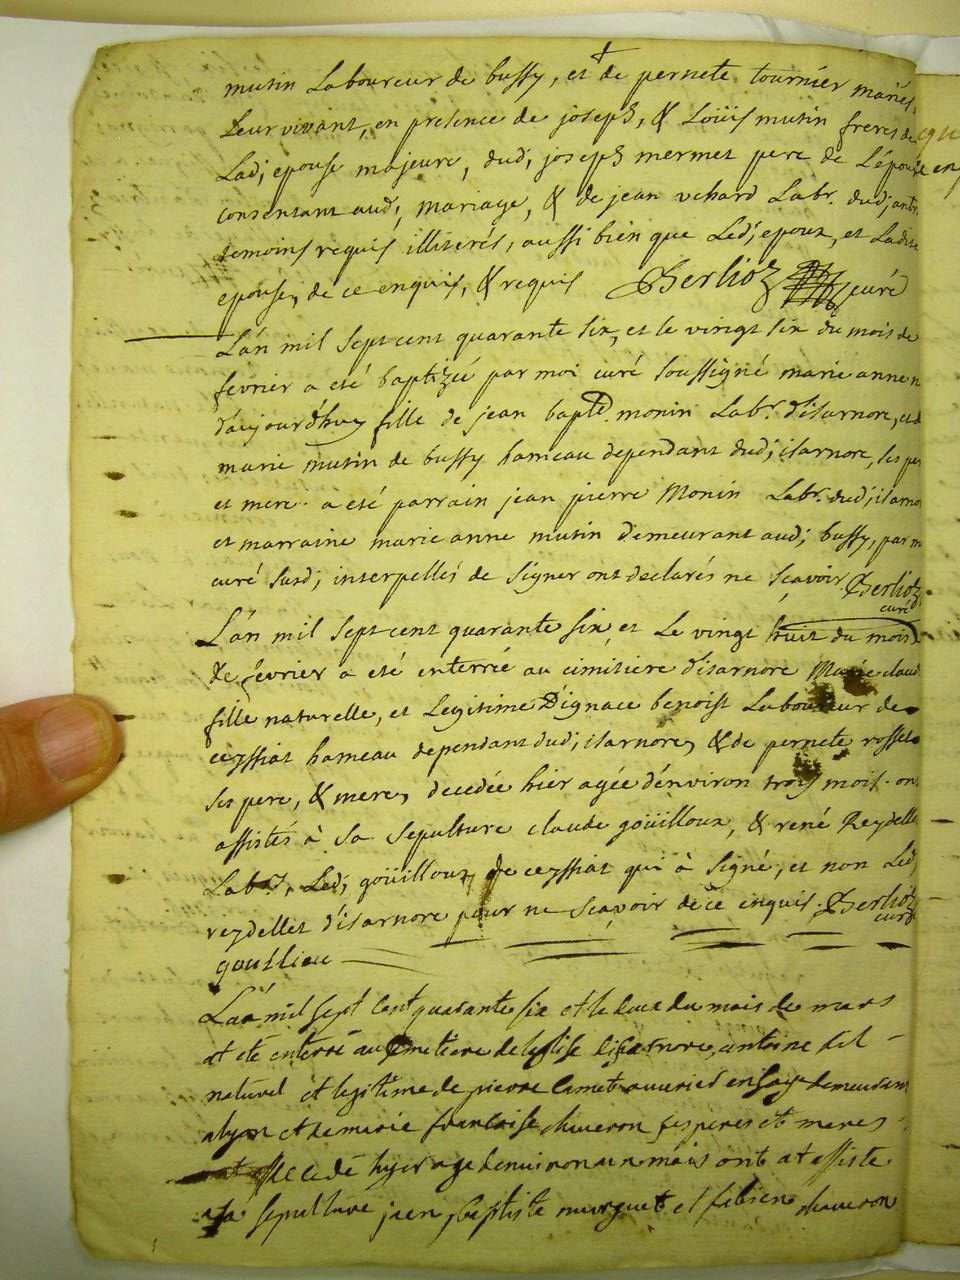 mutin Laboureur de bussy, et de pernete tournier mariés
Leur vivant, en presence de joseph, & Loüis mutin freres de
Lad; epouse majeure, dud; joseph mermet pere de L'épouse
consentant aud; mariage, & de jean vuhard Labr. dud;
temoins requis illiterés, aussi bien que Led; epoux, et Ladite
epouse, de ce enquis, & requis Berlioz curé
L'an mil sept cent quarante six, et le vingt six du mois de
fevrier a eté baptizée par moi curé soussigné marie anne
d'aujourd'huy fille de jean bapte. monin Labr. d'isarnore, et
marie mutin de bussy hameau dependant dud; isarnore, ses
et mere. a eté parrain jean pierre Monin Labr. dud; isarno
et marraine marie anne mutin demeurant aud; bussy, par
curé susd; interpellés de signer ont declarés ne sçavoir. Berlioz
curé
L'an mil sept cent quarante six et Le vingt huit du mois
de fevrier a eté enterrée au cimitiere d'isarnore Marie claud
fille naturelle, et Legitime D'ignace benoist Laboureur de
ceyssiat hameau dependant dud; isarnore, & de pernete rosset
ses pere, & mere, decedée hier agée d'environ trois mois. on
assistés à sa sepulture claude goüilloux, & rené Reydelle
Labrs. Led; goüilloux de ceyssiat qui à signé, et non Led;
reydellet d'isarnore pour ne sçavoir de ce enquis. Berlioz
curé
goullieu
L'an mil sept cent quarante six et le du mois de mars
at eté enterré au cmetiere de leglise disarnore, antoine fil
naturel et legitime de pierre camet demeurant
alyon et de marie francoise chaveron ses peres et meres
decedé hyer age denviron un mois ont at assiste
a sa sepulture jaen baptiste murguet et febien chaveron